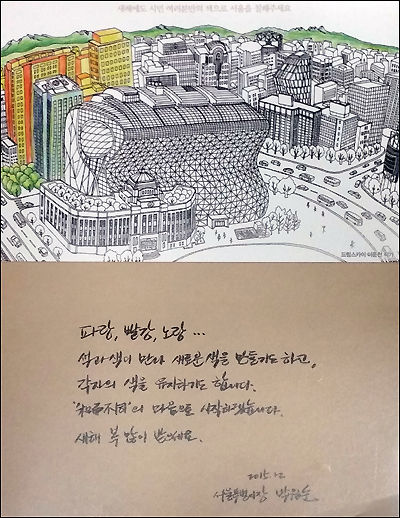 새해에도 시민 여러분만의 색으로 서울을 칠해주세요
드림스카이 이운선 작가
파랑, 빨강, 노랑 ...
색과 색이 만나 새로운 색을 만들기도 하고,
각자의 색을 유지하기도 합니다.
'和而不同'의 마음으로 시작하겠습니다.
새해 복 많이 받으세요.
2015.12
서울특별시장 박원순